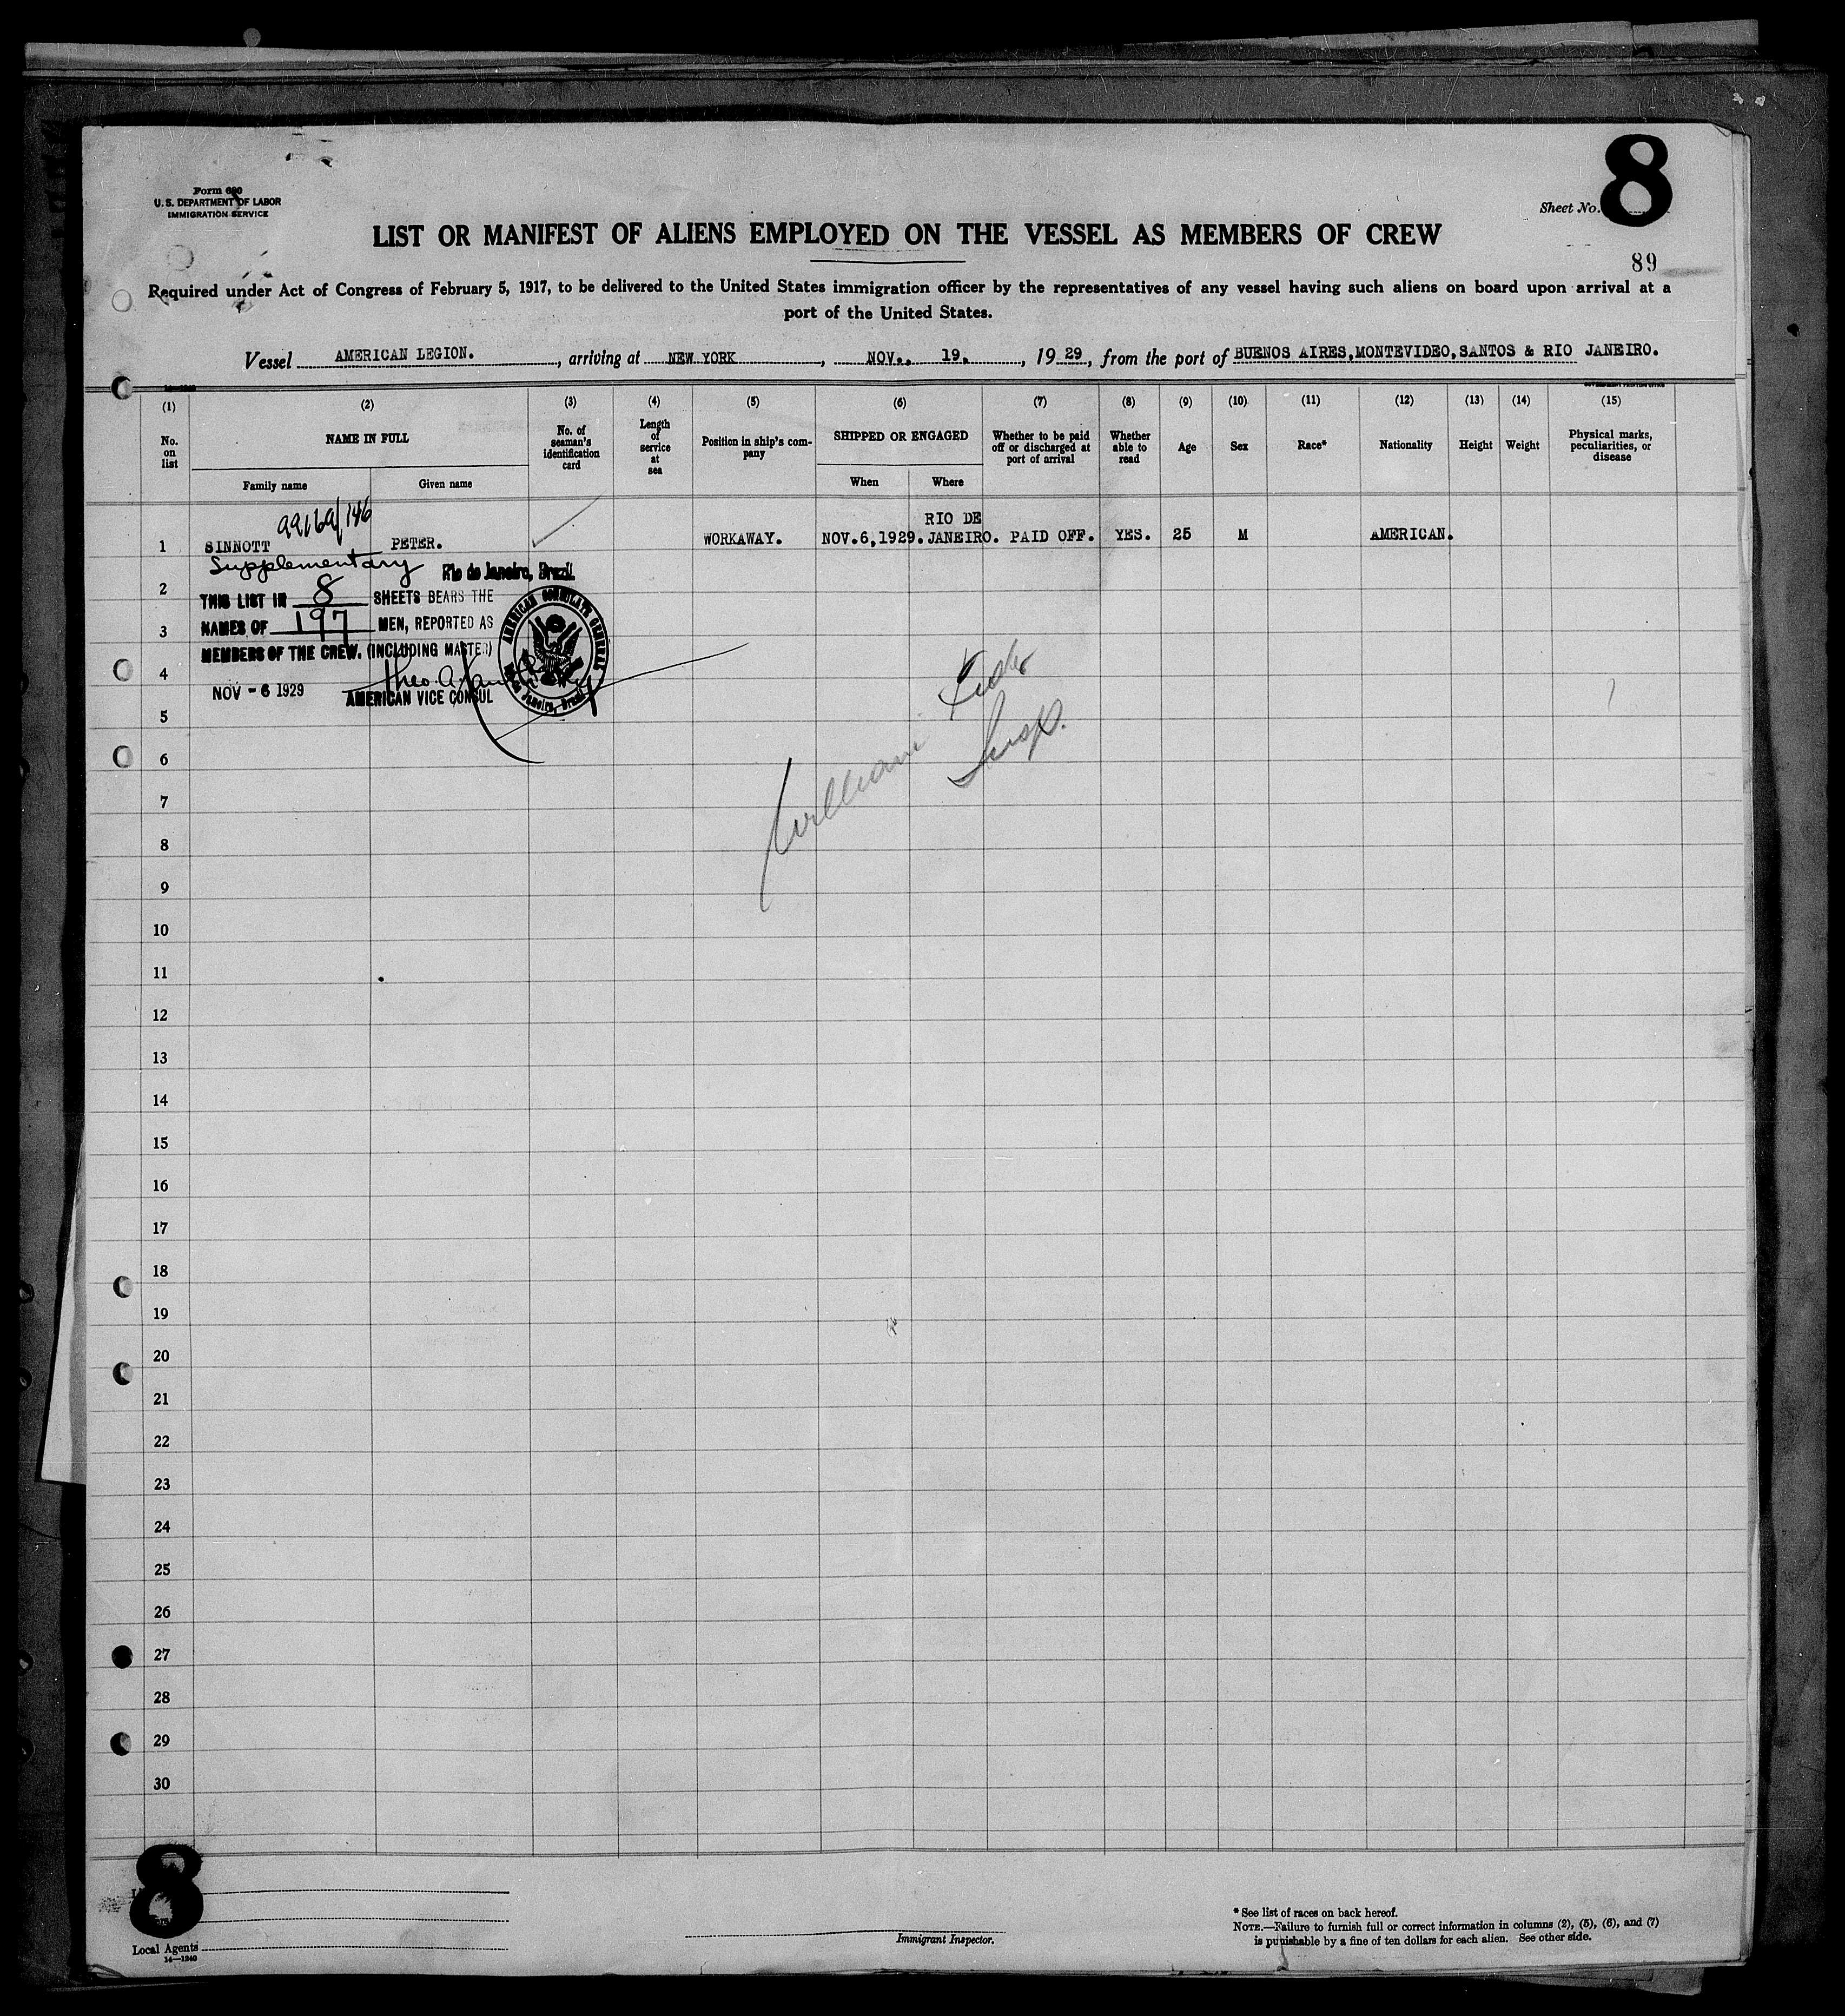 8
Form 680
U. S. DEPARTMENT OF LABOR
IMMIGRATION SERVICE
Sheet No.
LIST OR MANIFEST OF ALIENS EMPLOYED ON THE VESSEL AS MEMBERS OF CREW
89
Required under Act of Congress of February 5, 1917, to be delivered to the United States immigration officer by the representatives of any vessel having such aliens on board upon arrival at a
port of the United States.
Vessel AMERICAN LEGION. , arriving at NEW YORK , NOV.. 19. , 19 29 , from the port of BUENOS AIRES,MONTEVIDEO,SANTOS & RIO JANEIRO.
(1) (2) (3) (4) (5) (6) (7) (8) (9) (10) (11) (12) (13) (14) (15)
No. on list
NAME IN FULL
Family name
Given name
No. of seaman's identification card
Length of service at sea
Position in ship's company
SHIPPED OR ENGAGED
When
Where
Whether to be paid off or discharged at port of arrival
Whether able to read
Age
Sex
Race*
Nationality
Height
Weight
Physical marks, peculiarities, or disease
99169/146
1 SINNOTT PETER. WORKAWAY. NOV.6,1929. RIO DE JANEIRO. PAID OFF. YES. 25 M AMERICAN.
Supplementary
Rio de Janeiro, Brazil
THIS LIST IN 8 SHEETS BEARS THE
NAMES OF 197 MEN, REPORTED AS
MEMBERS OF THE CREW. (INCLUDING MASTER)
NOV - 6 1929
AMERICAN VICE CONSUL
AMERICAN CONSULATE GENERAL
Rio de Janeiro, Brazil
William
Insp.
2
3
4
5
6
7
8
9
10
11
12
13
14
15
16
17
18
19
20
21
22
23
24
25
26
27
28
29
30
8
Local Agents
14—1240
Immigrant Inspector.
* See list of races on back hereof.
NOTE.—Failure to furnish full or correct information in columns (2), (5), (6), and (7)
is punishable by a fine of ten dollars for each alien. See other side.